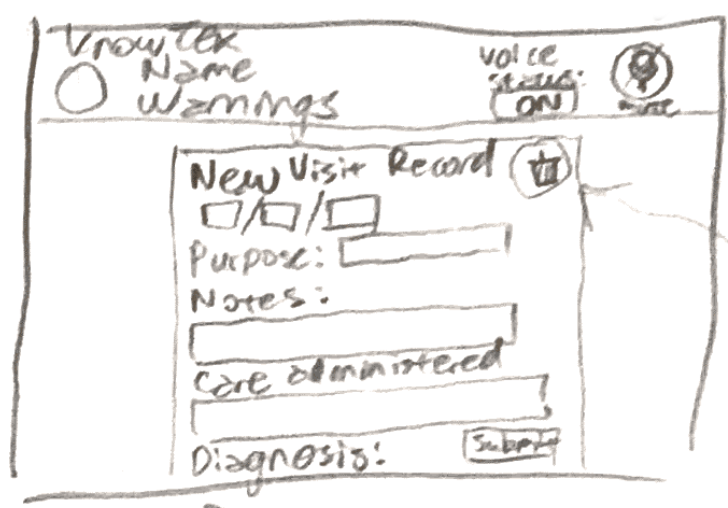 VnowTEK
Name
Warnings
voice
status:
ON
mute
New Visit Record
/ /
Purpose:
Notes:
Care administered
Diagnosis:
Submit